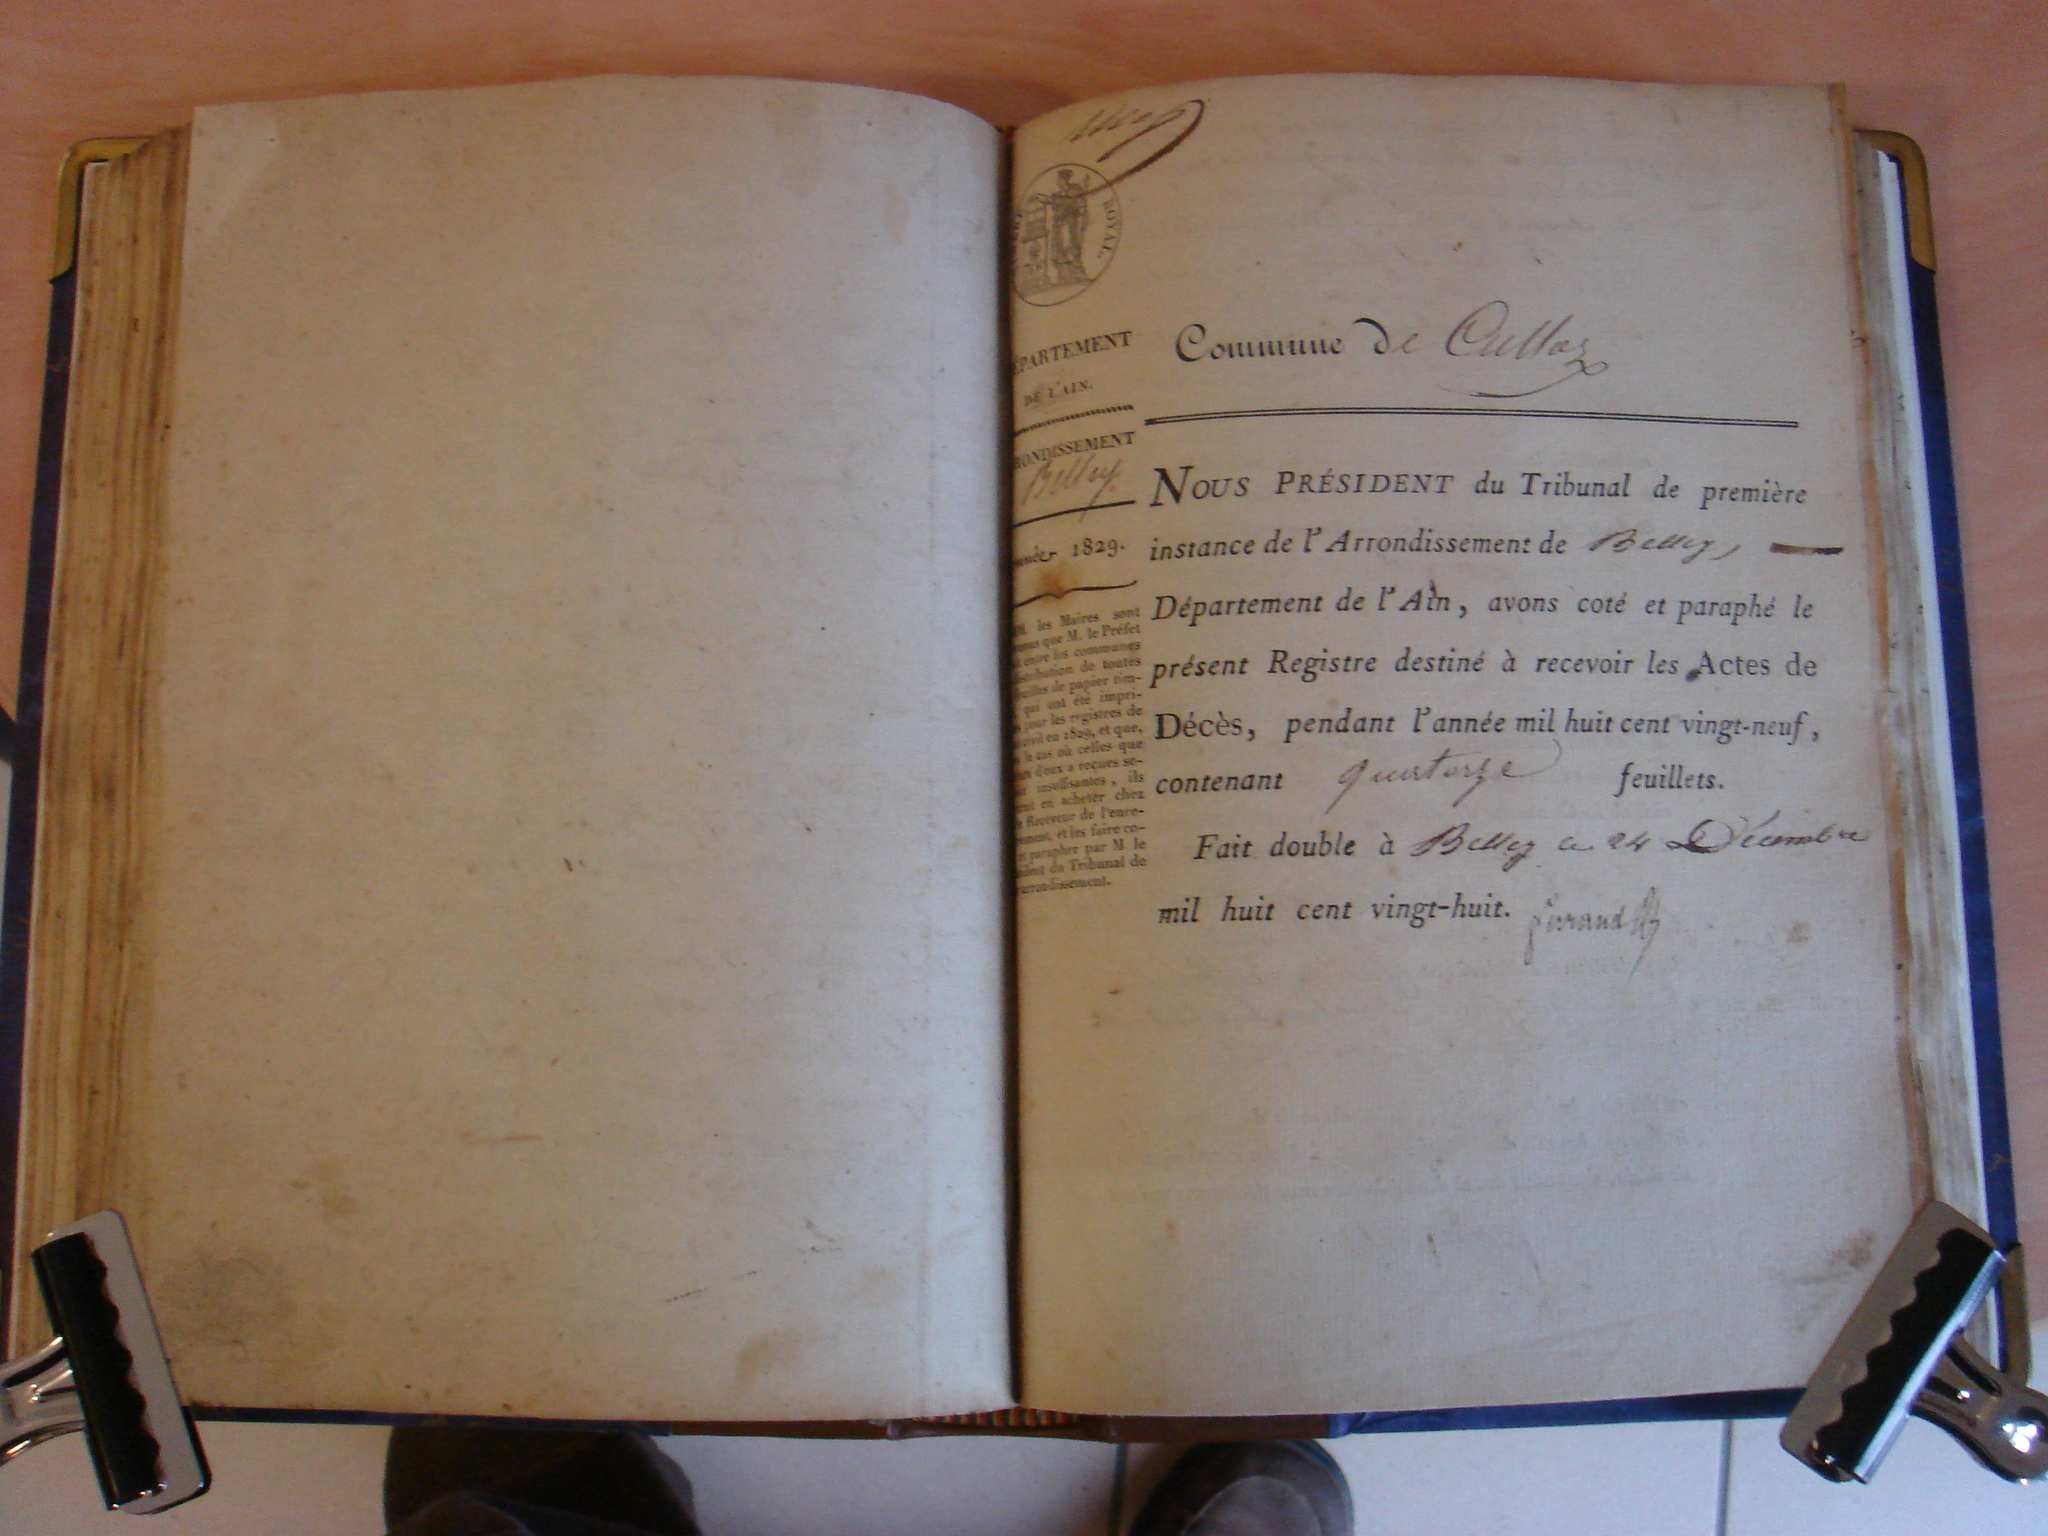 ROYAL
DÉPARTEMENT
DE L'AIN.
ARRONDISSEMENT
Belley.
Année 1829.
MM. les Maires sont
que M. le Préfet
entre les communes
distribution de toutes
feuilles de papier tim-
qui ont été impri-
pour les registres de
civil en 1829, et que,
le cas où celles que
d'eux a reçues se-
insuffisantes, ils
en acheter chez
le Receveur de l'enre-
gistrement, et les faire co-
ter et parapher par M. le
Président du Tribunal de
l'arrondissement.
Commune de Culloz
NOUS PRÉSIDENT du Tribunal de première
instance de l'Arrondissement de Belley,
Département de l'Ain, avons coté et paraphé le
présent Registre destiné à recevoir les Actes de
Décès, pendant l'année mil huit cent vingt-neuf,
contenant quatorze feuillets.
Fait double à Belley ce 24 Décembre
mil huit cent vingt-huit.